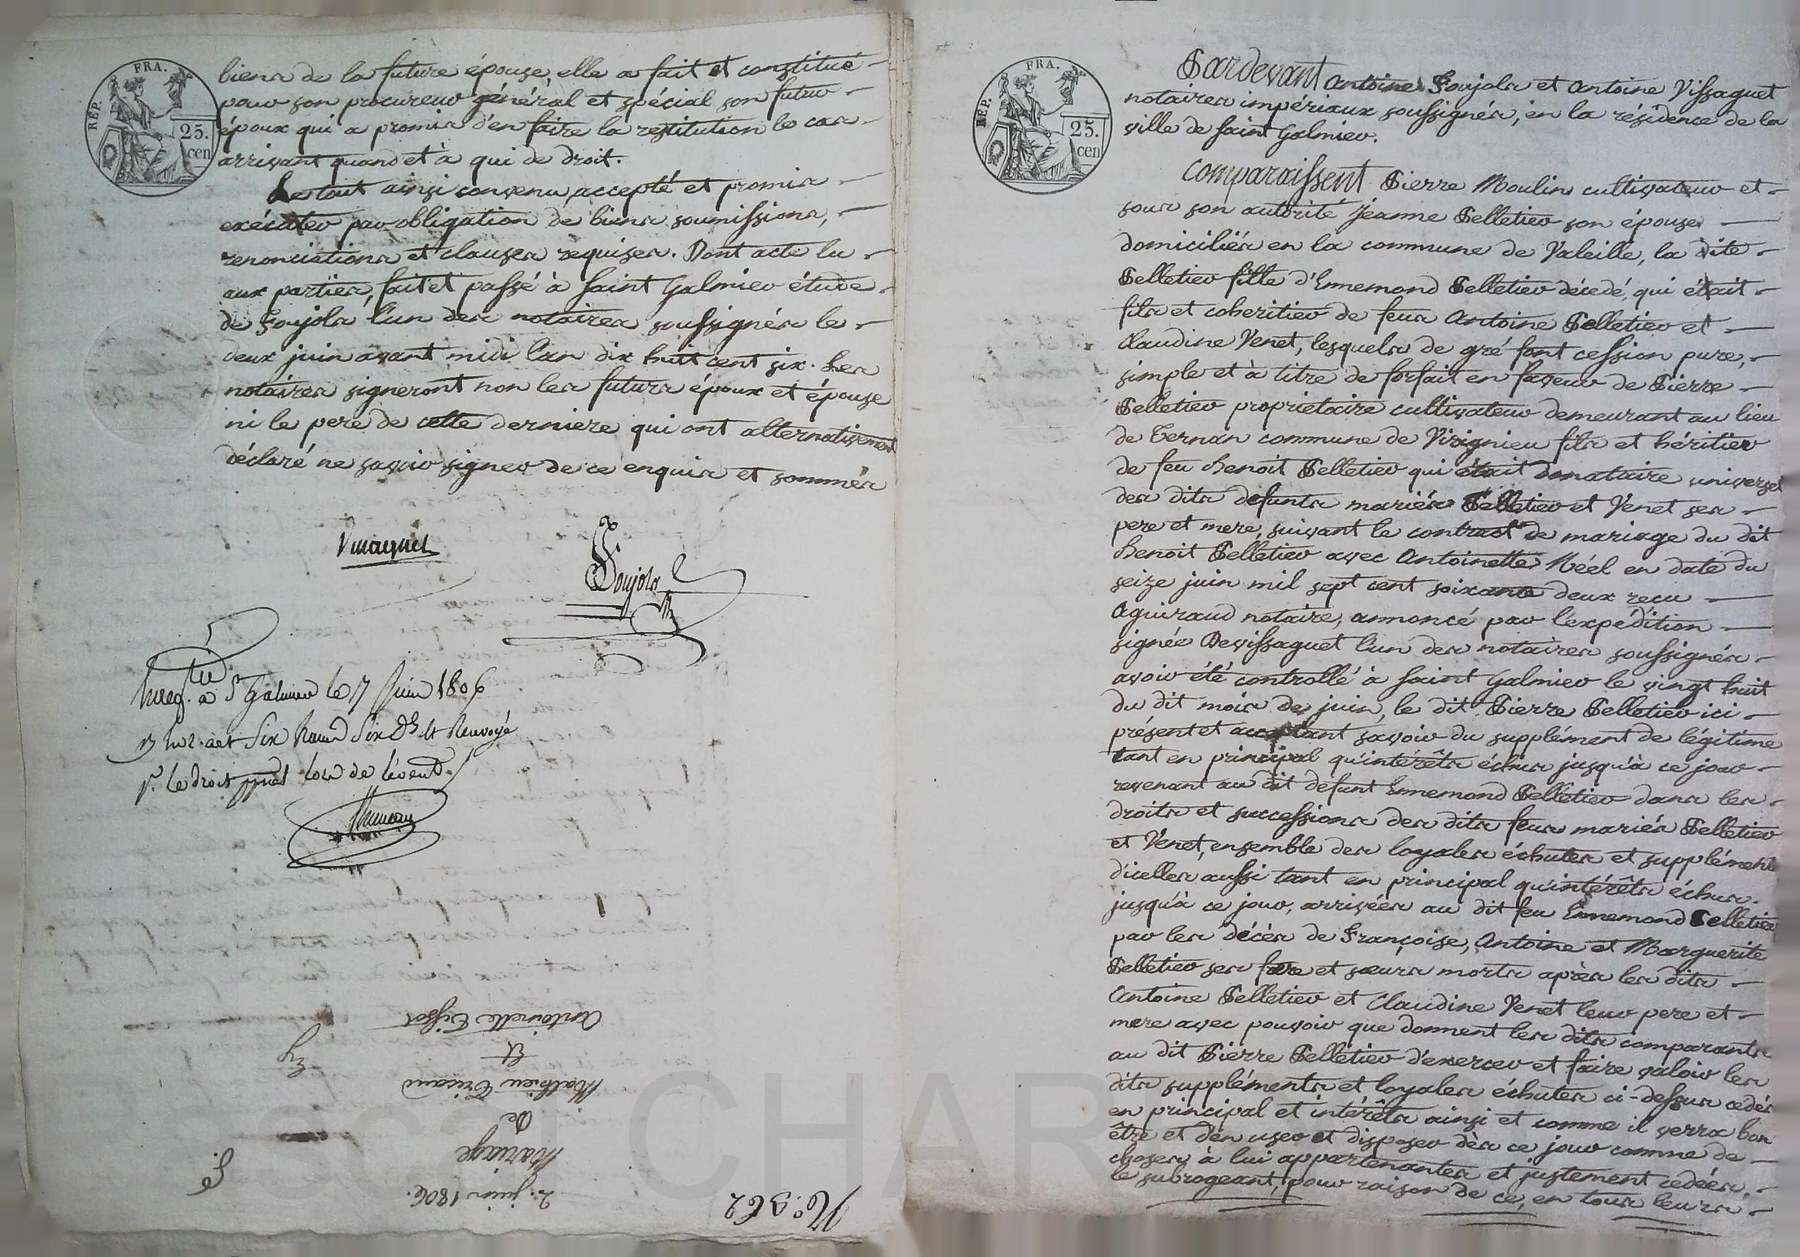 REP. FRA.
25.
cen
biens de la future épouse, elle a fait et constitué
pour son procureur général et spécial son futur
époux qui a promis d'en faire la restitution le cas
arrivant quand et à qui de droit.
Le tout ainsi convenu, accepté et promis
exécuter par obligation de biens soumissions,
renonciations et clauses requises. Dont acte lu
aux parties, fait et passé à Saint Galmier étude
de Soujols l'un des notaires soussignés le
deux juin avant midi l'an dix huit cent six. Les
notaires signeront non les futurs époux et épouse
ni le pere de cette derniere qui ont alternativement
déclaré ne savoir signer de ce enquis et sommés
Vissaguet
Soujols
Enreg. à St Galmier le 7 Juin 1806
Six
pr. le droit lors de l'évent.
No. 362
2. juin 1806.
Mariage
de
Mathieu Tricaud
Et
Antoinette Tissot
REP. FRA.
25.
cen
Pardevant Antoine Soujols et Antoine Vissaguet
notaires impériaux soussignés, en la résidence de la
ville de Saint Galmier.
Comparaissent Pierre Moulin cultivateur et
sous son autorité Jeanne Pelletier son épouse
domiciliés en la commune de Valeille, la dite
Pelletier fille d'Ennemond Pelletier décédé, qui était
fils et coheritier de feus Antoine Pelletier et
Claudine Venet, lesquels de gré font cession pure,
simple et à titre de forfait en faveur de Pierre
Pelletier proprietaire cultivateur demeurant au lieu
de Ternan commune de Virignieu fils et héritier
de feu Benoit Pelletier qui était donataire universel
des dits defunts mariés Pelletier et Venet ses
pere et mere, suivant le contract de mariage du dit
Benoit Pelletier avec Antoinette Néel en date du
seize juin mil sept cent soixante deux reçu
Aguiraud notaire, annoncé par l'expédition
signée Devissaguet l'un des notaires soussignés
avoir été controllé à Saint Galmier le vingt huit
du dit mois de juin, le dit Pierre Pelletier ici
présent et acceptant savoir du supplément de légitime
tant en principal qu'intérêts échus jusqu'à ce jour
revenant au dit defunt Ennemond Pelletier dans les
droits et successions des dits feus mariés Pelletier
et Venet, ensemble des loyales échutes et supplément
d'icelles aussi tant en principal qu'intérêts échus
jusqu'à ce jour, arrivées au dit feu Ennemond Pelletier
par les décès de Françoise, Antoine et Marguerite
Pelletier ses frere et sœurs morts après les dits
Antoine Pelletier et Claudine Venet leur pere et
mere avec pouvoir que donnent les dits comparants
au dit Pierre Pelletier d'exercer et faire valoir les
dits suppléments et loyales échutes ci-dessus cedés
en principal et intérêts ainsi et comme il verra bon
être et d'en user et disposer dès ce jour comme de
choses à lui appartenantes et justement cedées,
le subrogeant, pour raison de ce, en tous leurs